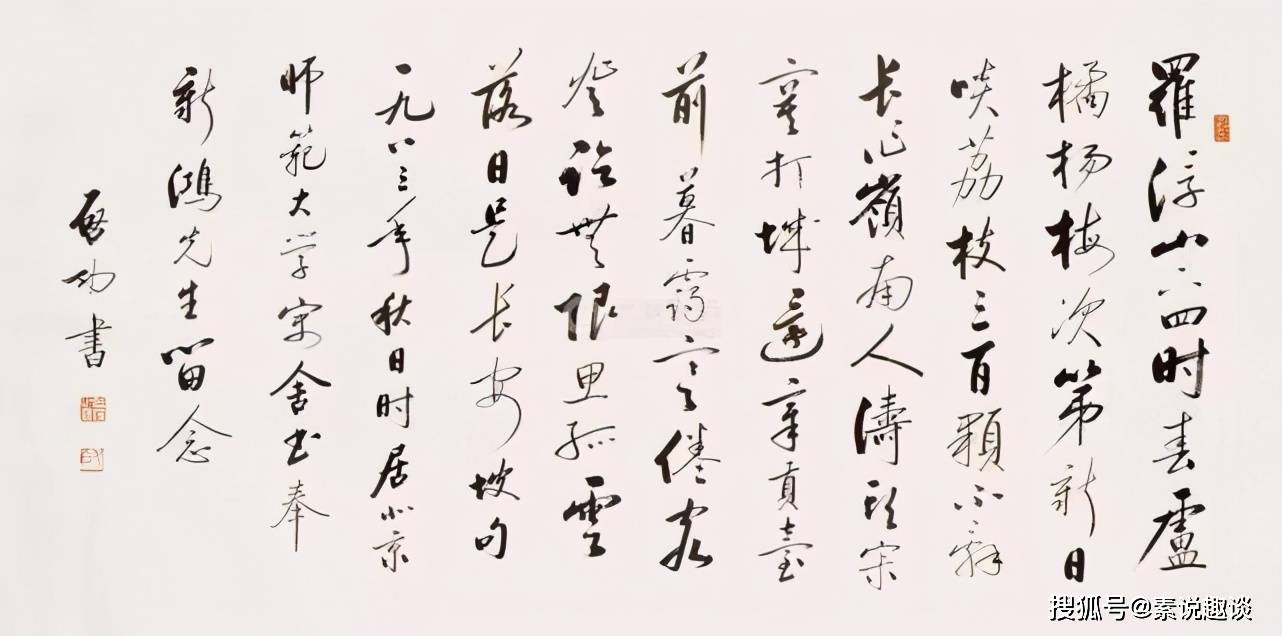 羅浮山下四时春盧
橘杨梅次第新日
啖荔枝三百顆不辞
长作嶺南人濤头寂
寞打城還章貢臺
前暮靄寒倦客
登临無限思孤雲
落日是长安坡句
一九八三年秋日时居北京
师範大学寓舍书奉
新鴻先生留念
启功書
搜狐号@素说趣谈